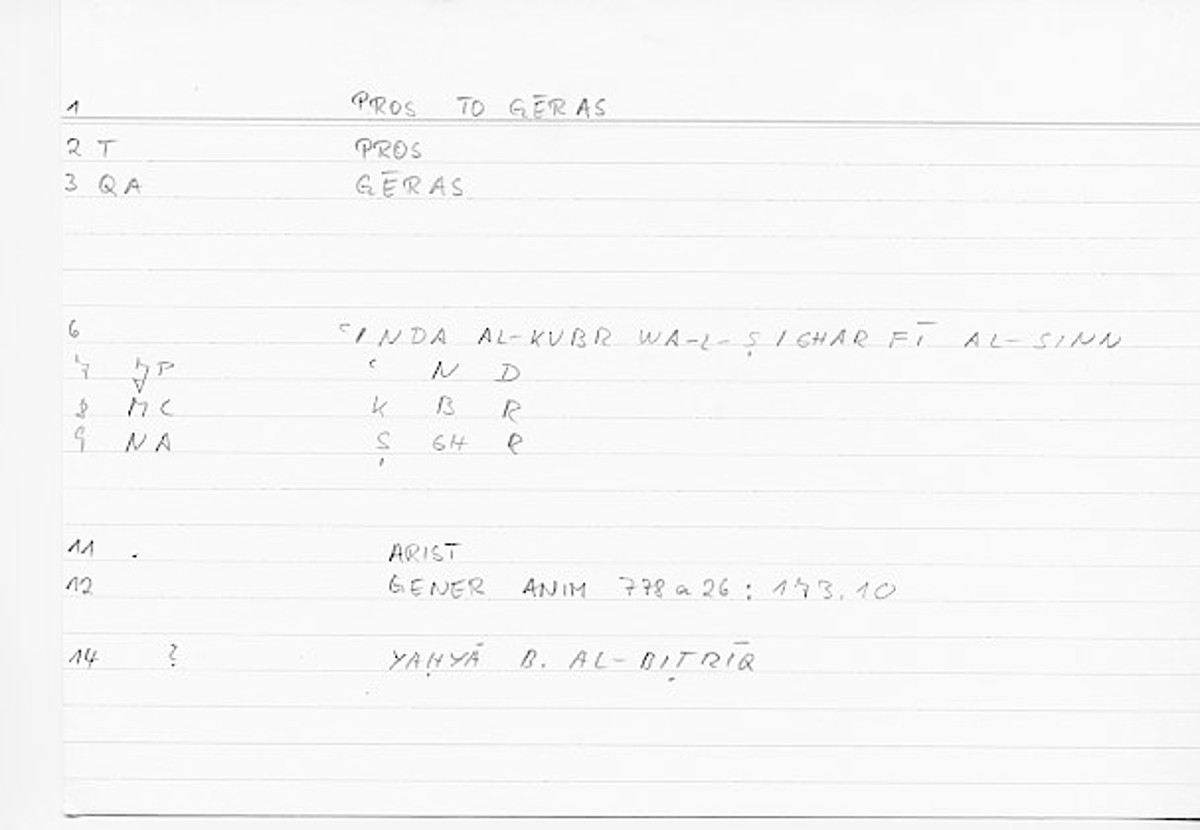 1 PROS TO GĒRAS
2 T PROS
3 QA GĒRAS
6 ʿINDA AL-KUBR WA-L-ṢIGHAR FĪ AL-SINN
7 7P ʿ N D
8 MC K B R
9 NA Ṣ GH R
11 . ARIST
12 GENER ANIM 778a26 : 173.10
14 ? YAḤYĀ B. AL-BIṬRĪQ